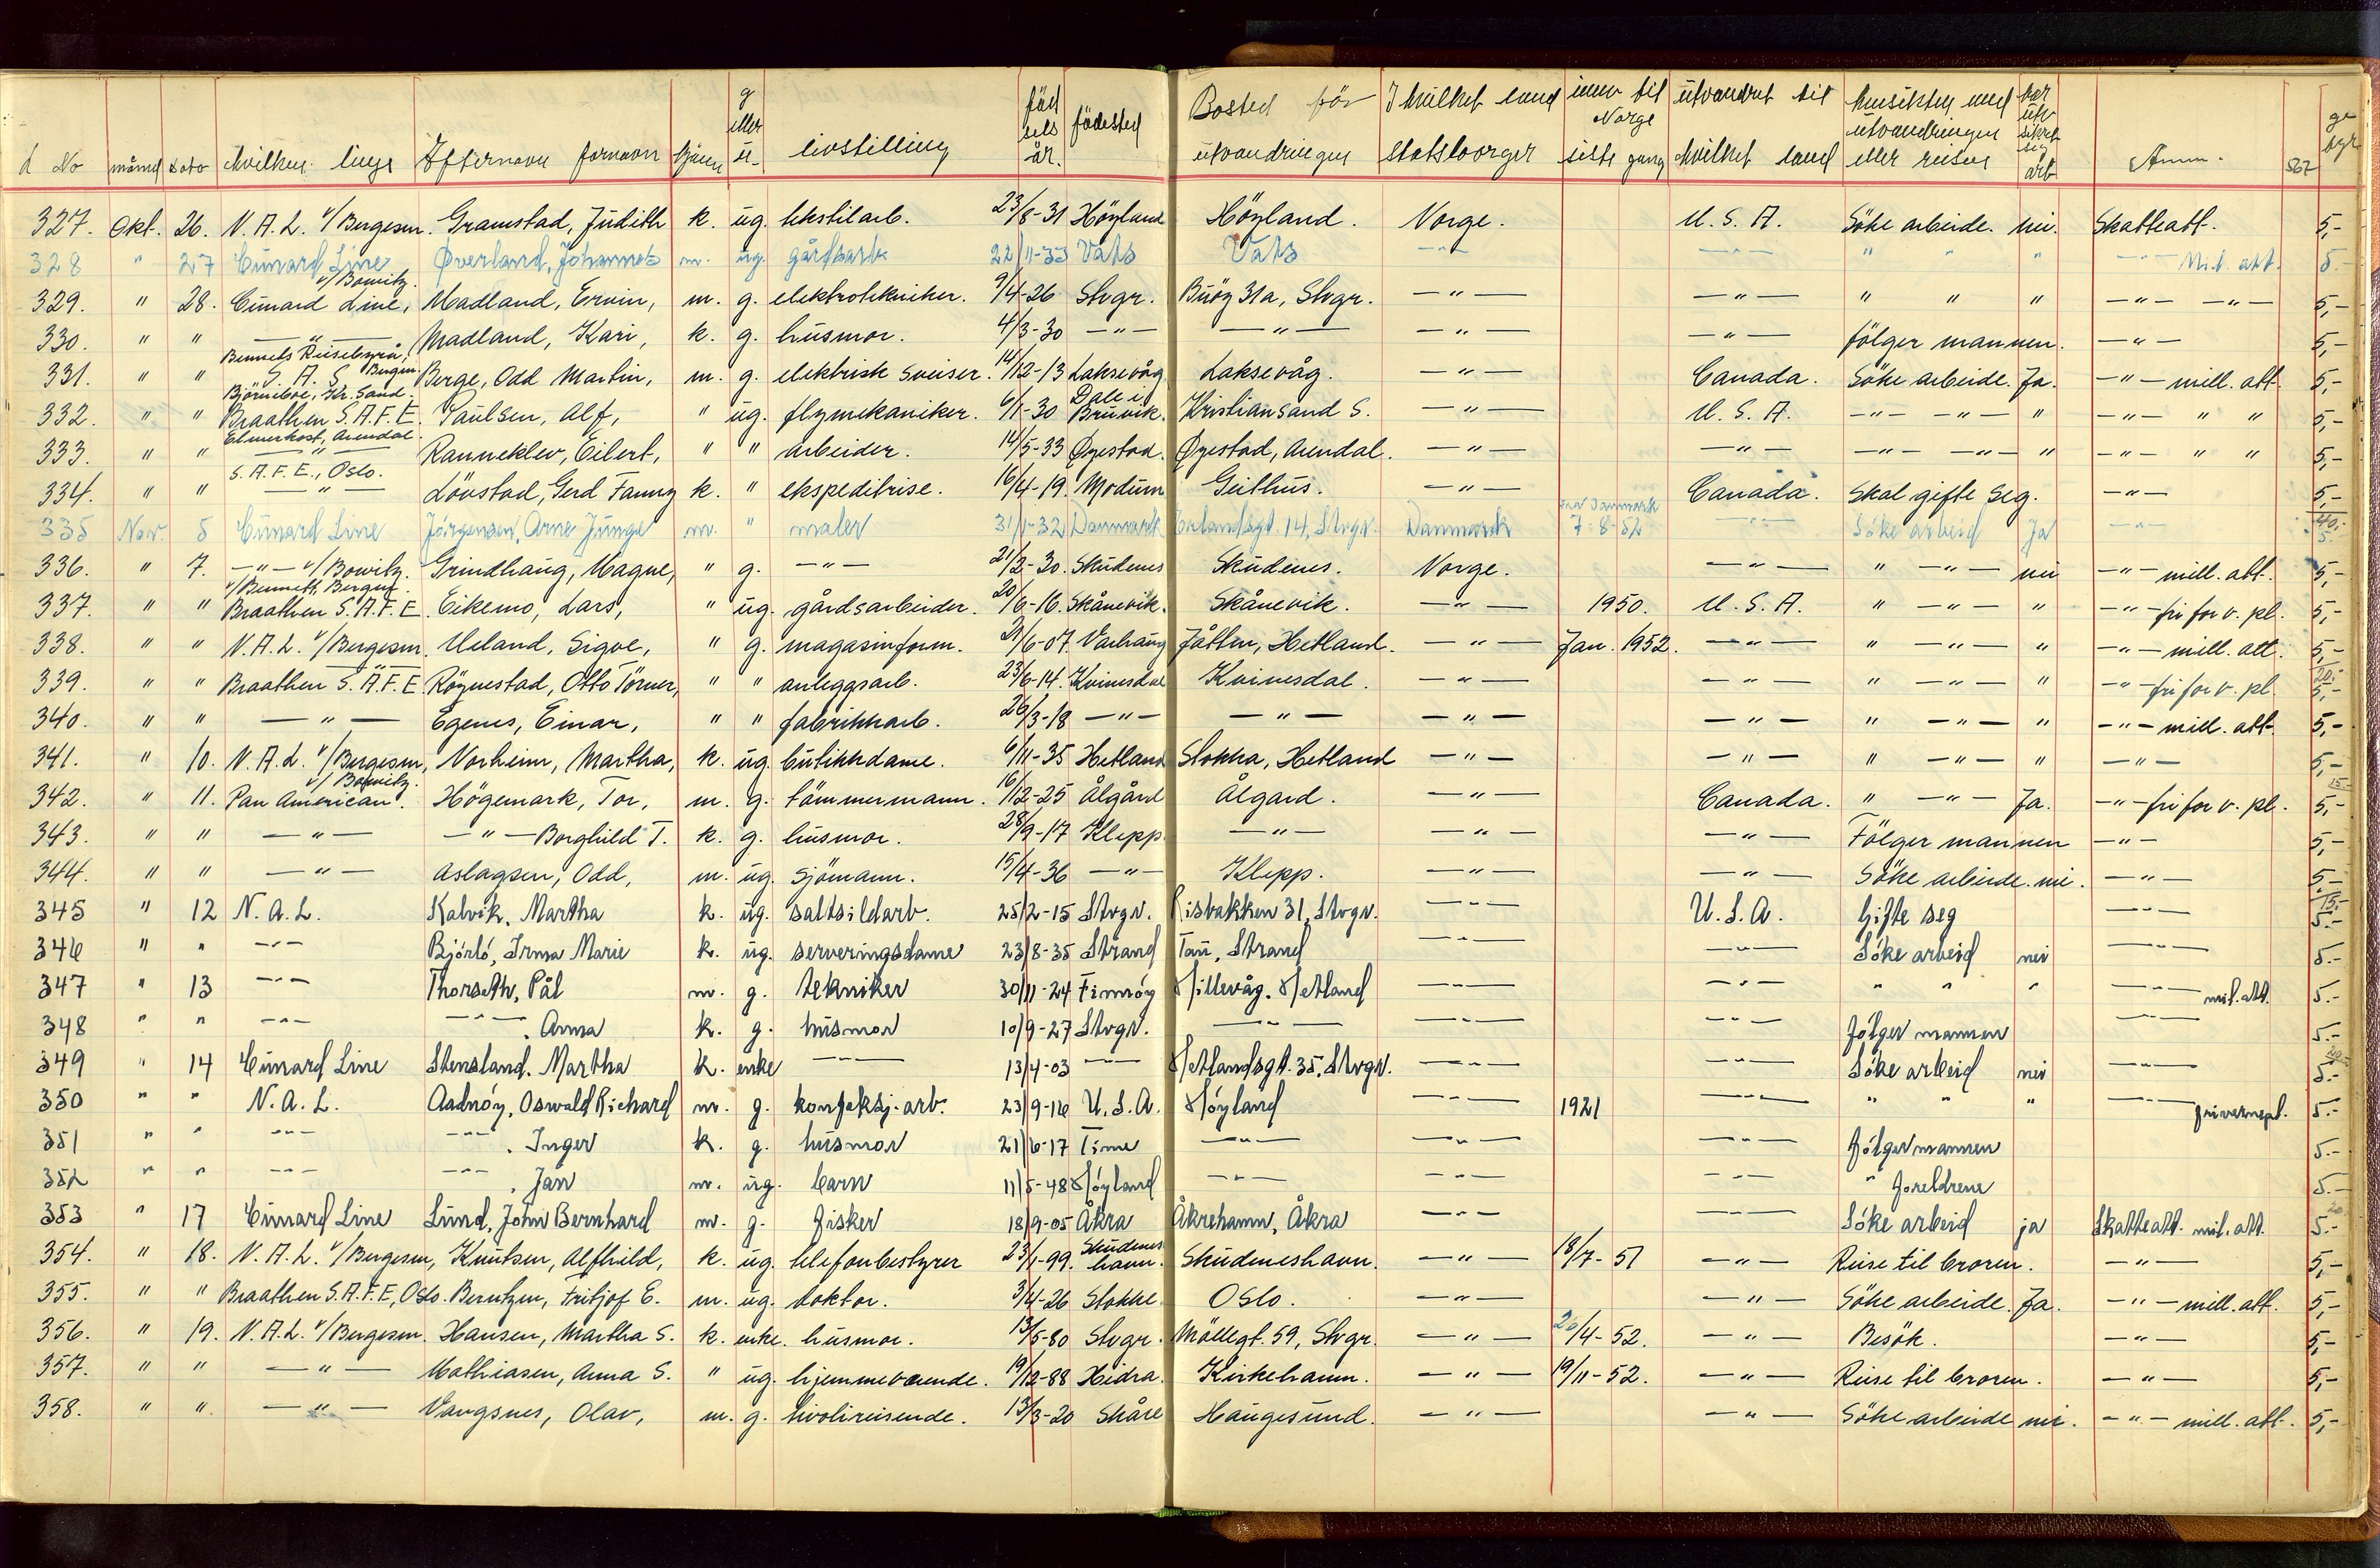 No måned dato hvilken linje Efternavn fornavn kjönn g eller u. livstilling födselsår. födested Bosted för utvandringen I hvilket land statsborger innv til Norge siste gang utvandret til hvilket land hensikten med utvandringen eller reisen har utv sikret seg arb Anm. 567 gebyr
327. Okt. 26. N.A.L. v/Bergesen. Gramstad, Judith k. ug. tekstilarb. 23/8-31 Höyland Höyland. Norge. U.S.A. Söke arbeide. nei. Skatteatt. 5,-
328 " 27 Cunard Line Øverland, Johannes m. ug. gårdsarb 22/11-33 Vats Vats -"- -"- " " " -"- Mil. att. 5.-
v/Bowitz.
329. " 28. Cunard Line, Madland, Ervin, m. g. elektrotekniker. 9/4-26 Stvgr. Buöy 31a, Stvgr. -"- -"- " " " -"- -"- 5,-
330. " " -"- Madland, Kari, k. g. husmor. 4/3-30 -"- -"- -"- -"- fölger mannen. -"- 5,-
Bennets Reisebyrå, Bergen.
331. " " S.A.S. Berge, Odd Martin, m. g. elektrisk sveiser. 14/12-13 Laksevåg Laksevåg. -"- Canada. Söke arbeide. Ja. -"- mill. att. 5,-
Björneboe, Kr. Sand. Dale i
332. " " Braathen S.A.F.E. Paulsen, Alf, " ug. flymekaniker. 6/1-30 Bruvik. Kristiansand S. -"- U.S.A. -"- -"- " -"- " " 5,-
Elmerkost, Arendal.
333. " " -"- Ranneklev, Eilert, " " arbeider. 14/5-33 Øyestad. Øyestad, Arendal. -"- -"- -"- -"- " -"- " " 5,-
S.A.F.E., Oslo.
334. " " -"- Lövstad, Gerd Fanny k. " ekspeditrise. 16/4-19. Modum Geithus. -"- Canada. Skal gifte seg. -"- 5,-
335 Nov. 5 Cunard Line Jörgensen, Arne Junge m. " maler 31/1-32 Danmark Erlandsgt. 14, Stvgr. Danmark 7-8-52 -"- Söke arbeid Ja -"- 5
336. " 7. -"- v/Bowitz. Grindhaug, Magne, " g. -"- 21/2-30. Skudenes Skudenes. Norge. -"- " -"- nei -"- mill. att. 5,-
v/Bennett, Bergen.
337. " " Braathen S.A.F.E. Eikemo, Lars, " ug. gårdsarbeider. 20/6-16. Skånevik. Skånevik. -"- 1950. U.S.A. " -"- " -"- fri for v. pl. 5,-
338. " " N.A.L. v/Bergesen. Ueland, Sigve, " g. magasinform. 21/6-07. Varhaug Jåtten, Hetland. -"- Jan. 1952. -"- " -"- " -"- mill. att. 5,-
339. " " Braathen S.A.F.E. Röynestad, Otto Törner, " " anleggsarb. 23/6-14. Kvinesdal Kvinesdal. -"- -"- " -"- " -"- fri for v. pl. 5,-
340. " " -"- Egenes, Einar, " " fabrikkarb. 26/3-18 -"- -"- -"- -"- " -"- " -"- mill. att. 5,-
341. " 10. N.A.L. v/Bergesen, Norheim, Martha, k. ug. butikkdame. 6/11-35 Hetland Stokka, Hetland -"- -"- " -"- " -"- 5,-
v/Bowitz.
342. " 11. Pan American. Högemark, Tor, m. g. tömmermann. 16/12-25 Ålgård Ålgård. -"- Canada. " -"- Ja. -"- fri for v. pl. 5,-
343. " " -"- -"- Borghild T. k. g. husmor. 28/9-17 Klepp -"- -"- -"- Fölger mannen -"- 5,-
344. " " -"- Aslagsen, Odd, m. ug. sjömann. 15/4-36 -"- Klepp. -"- -"- Söke arbeide. nei. -"- 5,-
345 " 12 N.A.L. Kalvik, Martha k. ug. saltsildarb. 25/2-15 Stvgr. Risbakken 31, Stvgr. -"- U.S.A. Gifte seg -"- 5.-
346 " " -"- Björlö, Irma Marie k. ug. serveringsdame 23/8-35 Strand Tau, Strand -"- -"- Söke arbeid nei -"- 5.-
347 " 13 -"- Thorseth, Pål m. g. tekniker 30/11-24 Finnöy Hillevåg, Hetland -"- -"- " " " -"- mil. att. 5.-
348 " " -"- -"-, Anna k. g. husmor 10/9-27 Stvgr. -"- -"- -"- Fölger mannen -"- 5.-
349 " 14 Cunard Line Stensland, Martha k. enke -"- 13/4-03 -"- Hetlandsgt. 35, Stvgr. -"- -"- Söke arbeid nei -"- 5.-
350 " " N.A.L. Aadnöy, Oswald Richard m. g. konfeksj. arb. 23/9-16 U.S.A. Höyland -"- 1921 -"- " " " -"- fri vernepl. 5.-
351 " " -"- -"-, Inger k. g. husmor 21/6-17 Time -"- -"- -"- Fölger mannen 5.-
352 " " -"- -"-, Jan m. ug. barn 11/5-48 Höyland -"- -"- -"- " foreldrene 5.-
353 " 17 Cunard Line Lund, John Bernhard m. g. fisker 18/9-05 Åkra Åkrehamn, Åkra -"- -"- Söke arbeid ja Skatteatt. mil. att. 5.-
354. " 18. N.A.L. v/Bergesen, Knutsen, Alfhild, k. ug. telefonbestyrer 23/1-99. Skudeneshavn. Skudeneshavn. -"- 18/7-51 -"- Reise til broren. -"- 5,-
355. " " Braathen S.A.F.E, Oslo. Berntzen, Fritjof E. m. ug. doktor. 3/4-26 Stokke Oslo. -"- -"- Söke arbeide. Ja. -"- mill. att. 5,-
356. " 19. N.A.L. v/Bergesen. Hansen, Martha S. k. enke. husmor. 13/5-80 Stvgr. Möllegt. 59, Stvgr. -"- 20/4-52. -"- Besök. -"- 5,-
357. " " -"- Mathiasen, Anna S. " ug. hjemmeværende. 19/12-88 Hidra. Kirkehamn. -"- 19/11-52. -"- Reise til broren. -"- 5,-
358. " " -"- Vangsnes, Olav, m. g. tivolireisende. 13/3-20 Skåre Haugesund. -"- -"- Söke arbeide nei. -"- mill. att. 5,-